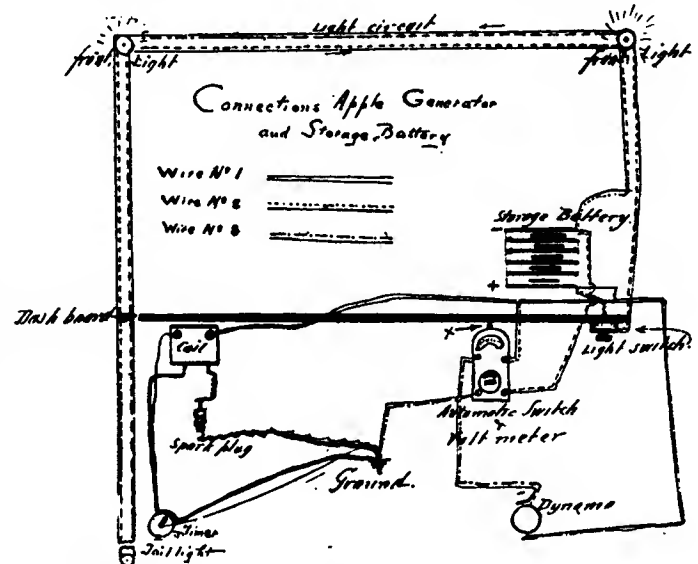 Light circuit
front Light
front Light
Connections Apple Generator
and Storage Battery
Wire No 1
Wire No 2
Wire No 3
Storage Battery
+
Dash board
Coil
x
Light switch.
Automatic Switch
&
Volt meter
Spark plug
Ground.
Dynamo
Timer
Tail light